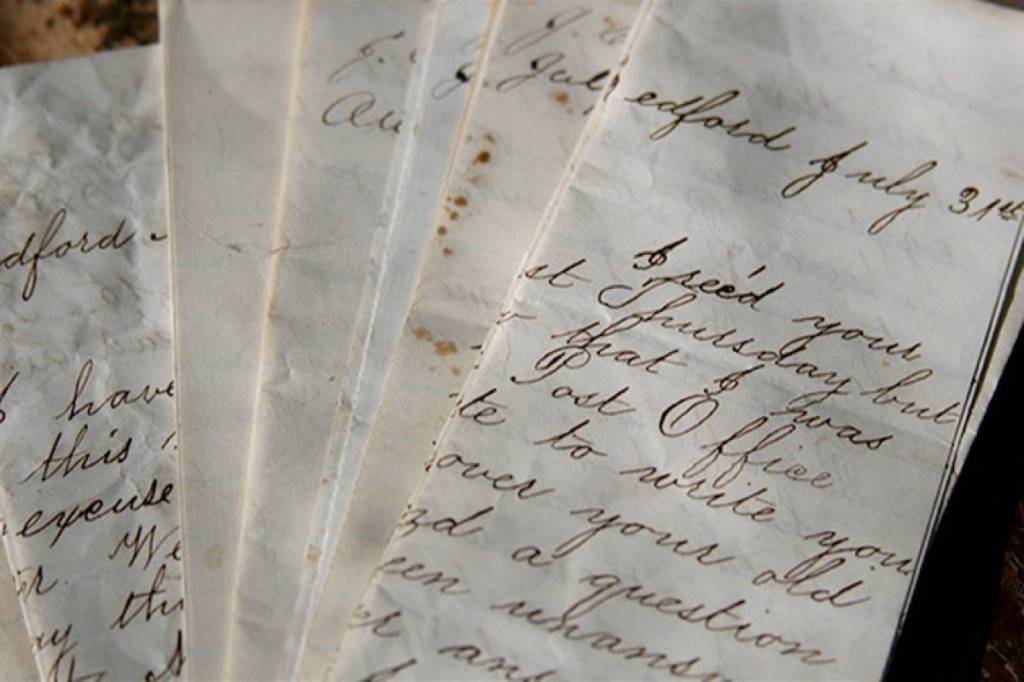 edford July 31st
I rec'd your
st Thursday but
that I was
Post Office
te to write you
over your old
a question
een unansw
dford
I have
this
excuse
We
ay thi